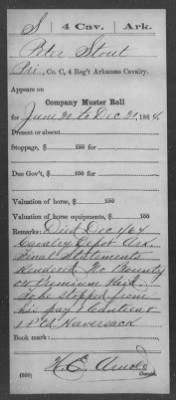 S | 4 Cav. | Ark.
Peter Stout
Pvt., Co. C, 4 Reg't Arkansas Cavalry.
Appears on
Company Muster Roll
for June 30 to Dec 31, 1864.
Present or absent
Stoppage, $ 100 for
Due Gov't, $ 100 for
Valuation of horse, $ 100
Valuation of horse equipments, $ 100
Remarks: Died Dec /64
Cavalry Depot Ark.
Final Statements
Rendered No Bounty
or Premium Paid.
To be stopped from
his pay 1 Canteen &
1 Haversack
Book mark:
(358)
Copyist.